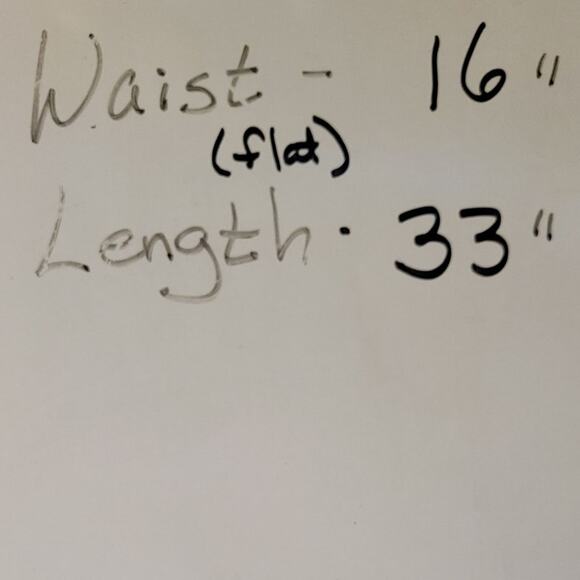 Waist - 16"
(flat)
Length - 33"